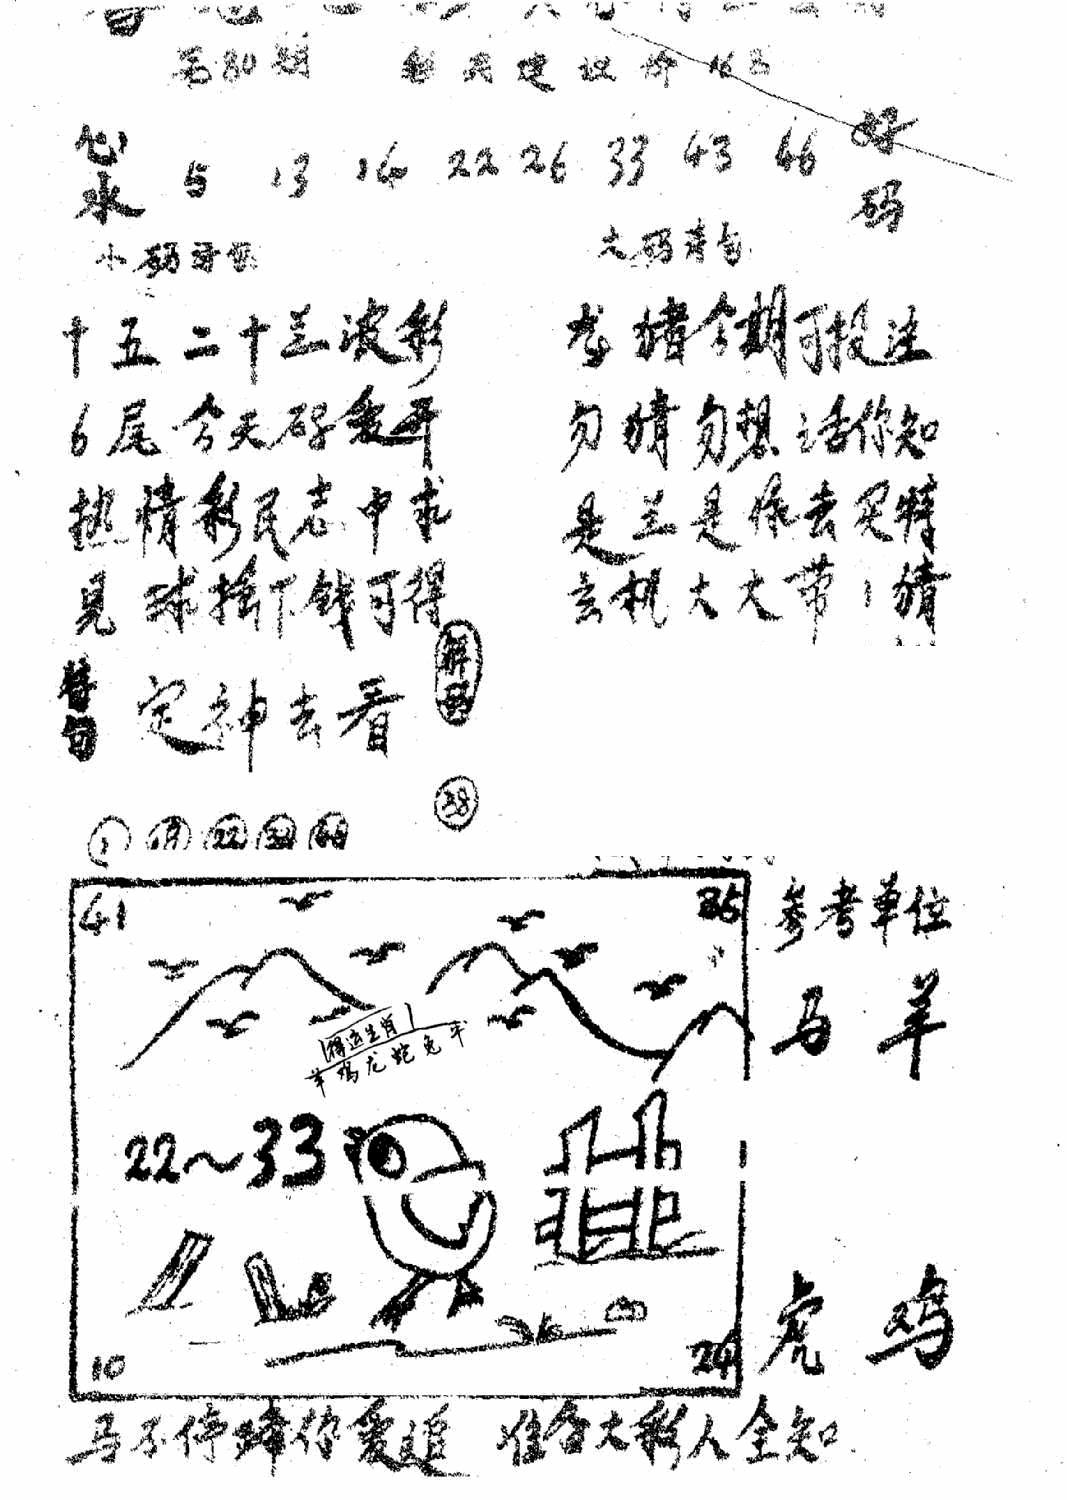 第80期 彩民建议价
心水 5 13 14 22 26 33 43 46 好码
小码诗句
大码诗句
十五二十兰波彩
6尾今天好爱开
热情彩民志中求
见球捨下钱可得
龙猪今期可投注
勿猜勿想话你知
是兰是绿去买特
玄机大大带1猜
特句 定神去看
解码
38
22
41 35
参考单位
马 羊
得运生肖
羊鸡龙蛇兔牛
22~33
虎 鸡
10 24
马不停蹄你爱追 准备大彩人全知